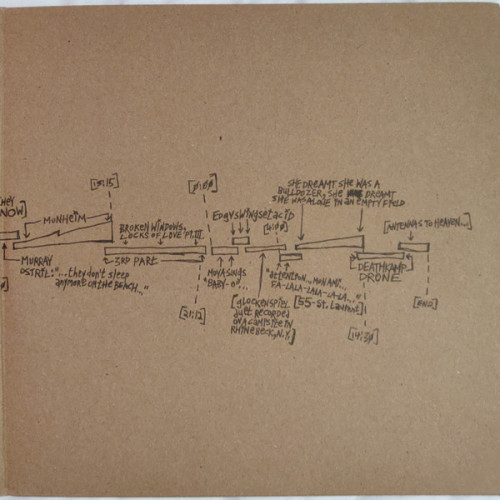 NOW]
MONHEIM
[10:15]
BROKEN WINDOWS,
LOCKS OF LOVE PT. III.
MURRAY
OSTRIL: "...they don't sleep
anymore on the beach..."
3RD PART
[21:12]
EdgySwingSetAcid
MOYA SINGS
"BABY-O"...
[glockenspiel
duet recorded
on a campsite in
Rhinebeck, N.Y.]
"Attention...mon ami...
FA-LALA-LALA-LA-LA..."
[55-St. Laurent]
SHE DREAMT SHE WAS A
BULLDOZER, SHE DREAMT
SHE WAS ALONE IN AN EMPTY FIELD
[ANTENNAS TO HEAVEN...]
DEATHKAMP
DRONE
[14:30]
[END]